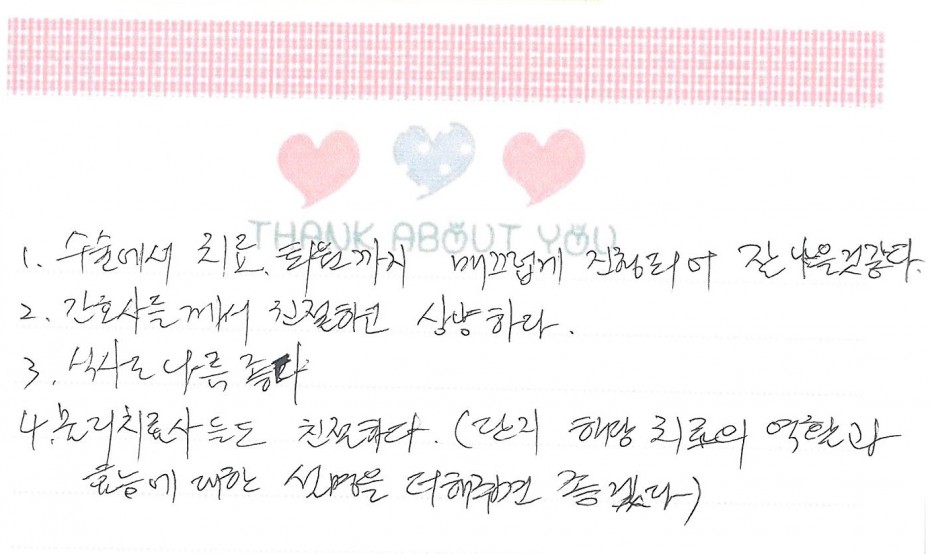 THANK ABOUT YOU
1. 수술에서 치료, 퇴원까지 매끄럽게 진행되어 잘 나을것같다.
2. 간호사들께서 친절하고 상냥하다.
3. 식사도 나름 좋다
4. 물리치료사들도 친절하다. (단지 해당 치료의 역할과
효능에 대한 설명을 더해주면 좋겠다)